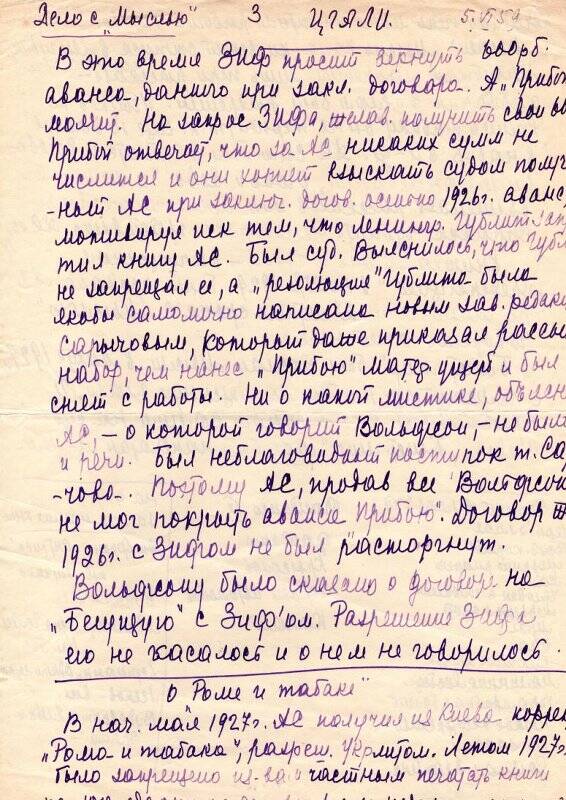 Дело с "Мыслью" 3 ЦГАЛИ. 5.VI 59
В это время Зиф просит вернуть 600 рб.
аванса, данного при закл. договора. А "Прибой"
молчит. На запрос Зифа, желав. получить свои
Прибой отвечает, что за АС никаких сумм не
числится и они хотят взыскать судом получ
-ный АС при заключ. догов. осенью 1926 г. аванс,
мотивируя иск тем, что Ленингр. Гублит запре
тил книгу АС. Был суд. Выяснилось, что Губл
не запрещал ее, а "резолюция" Гублита была
якобы самолично написана новым зав. редакц
Сарычовым, который даже приказал рассып
набор, чем нанес "Прибою" матер. ущерб и был
снят с работы. Ни о какой мистике, объясн
АС, – о которой говорит Вольфсон, – не было
и речи. Был неблаговидный поступок т. Сар
-чова. Поэтому АС, продав все Вольфсон
не мог покрыть аванса "Прибою". Договор
1926 г. с Зифом не был расторгнут.
Вольфсону было сказано о договоре на
"Бегущую" с Зиф'ом. Разрешение Зифа
его не касалось и о нем не говорилось.
О Роме и табаке"
В нач. мая 1927 г. АС получил из Киева коррек
"Рома и табака", разреш. Укрлитом. Летом 1927 г.
было запрещено из-ва частным печатать книги